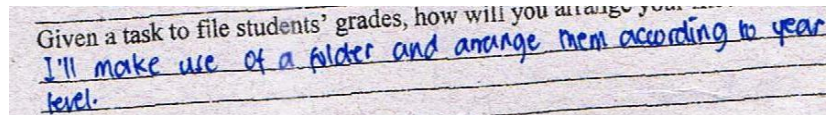 Given a task to file students' grades, how will you arrange
I'll make use of a folder and arrange them according to year
level.